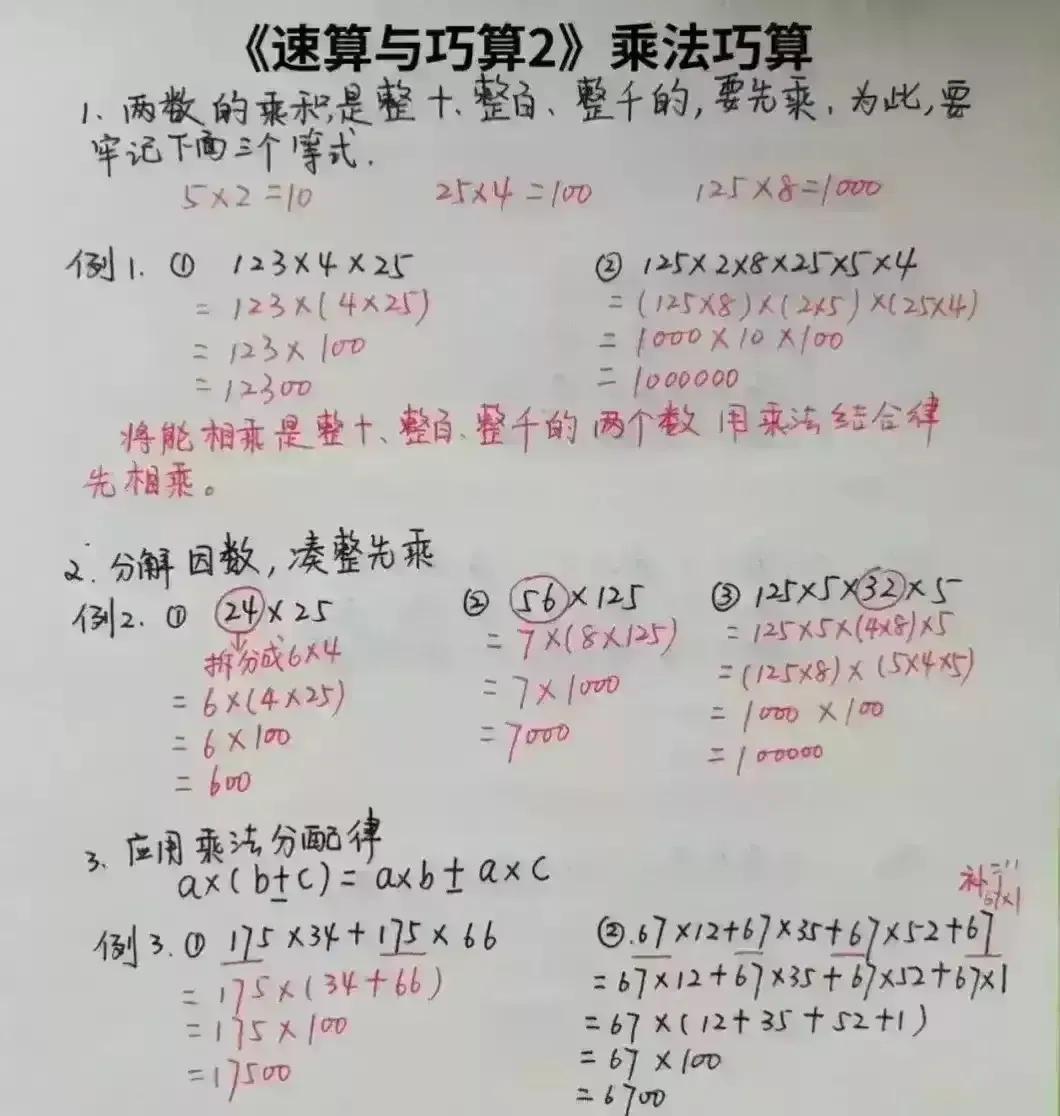 《速算与巧算2》乘法巧算
1、两数的乘积是整十、整百、整千的,要先乘.为此,要
牢记下面三个等式.
5×2=10 25×4=100 125×8=1000
例1. ① 123×4×25
=123×(4×25)
=123×100
=12300
② 125×2×8×25×5×4
=(125×8)×(2×5)×(25×4)
=1000×10×100
=1000000
将能相乘是整十、整百、整千的两个数用乘法结合律
先相乘。
2.分解因数,凑整先乘
例2. ① 24×25
拆分成6×4
=6×(4×25)
=6×100
=600
② 56×125
=7×(8×125)
=7×1000
=7000
③ 125×5×32×5
=125×5×(4×8)×5
=(125×8)×(5×4×5)
=1000×100
=100000
3、应用乘法分配律
a×(b±c)=a×b±a×c
例3.① 175×34+175×66
=175×(34+66)
=175×100
=17500
补"1"
67×1
②.67×12+67×35+67×52+67
=67×12+67×35+67×52+67×1
=67×(12+35+52+1)
=67×100
=6700